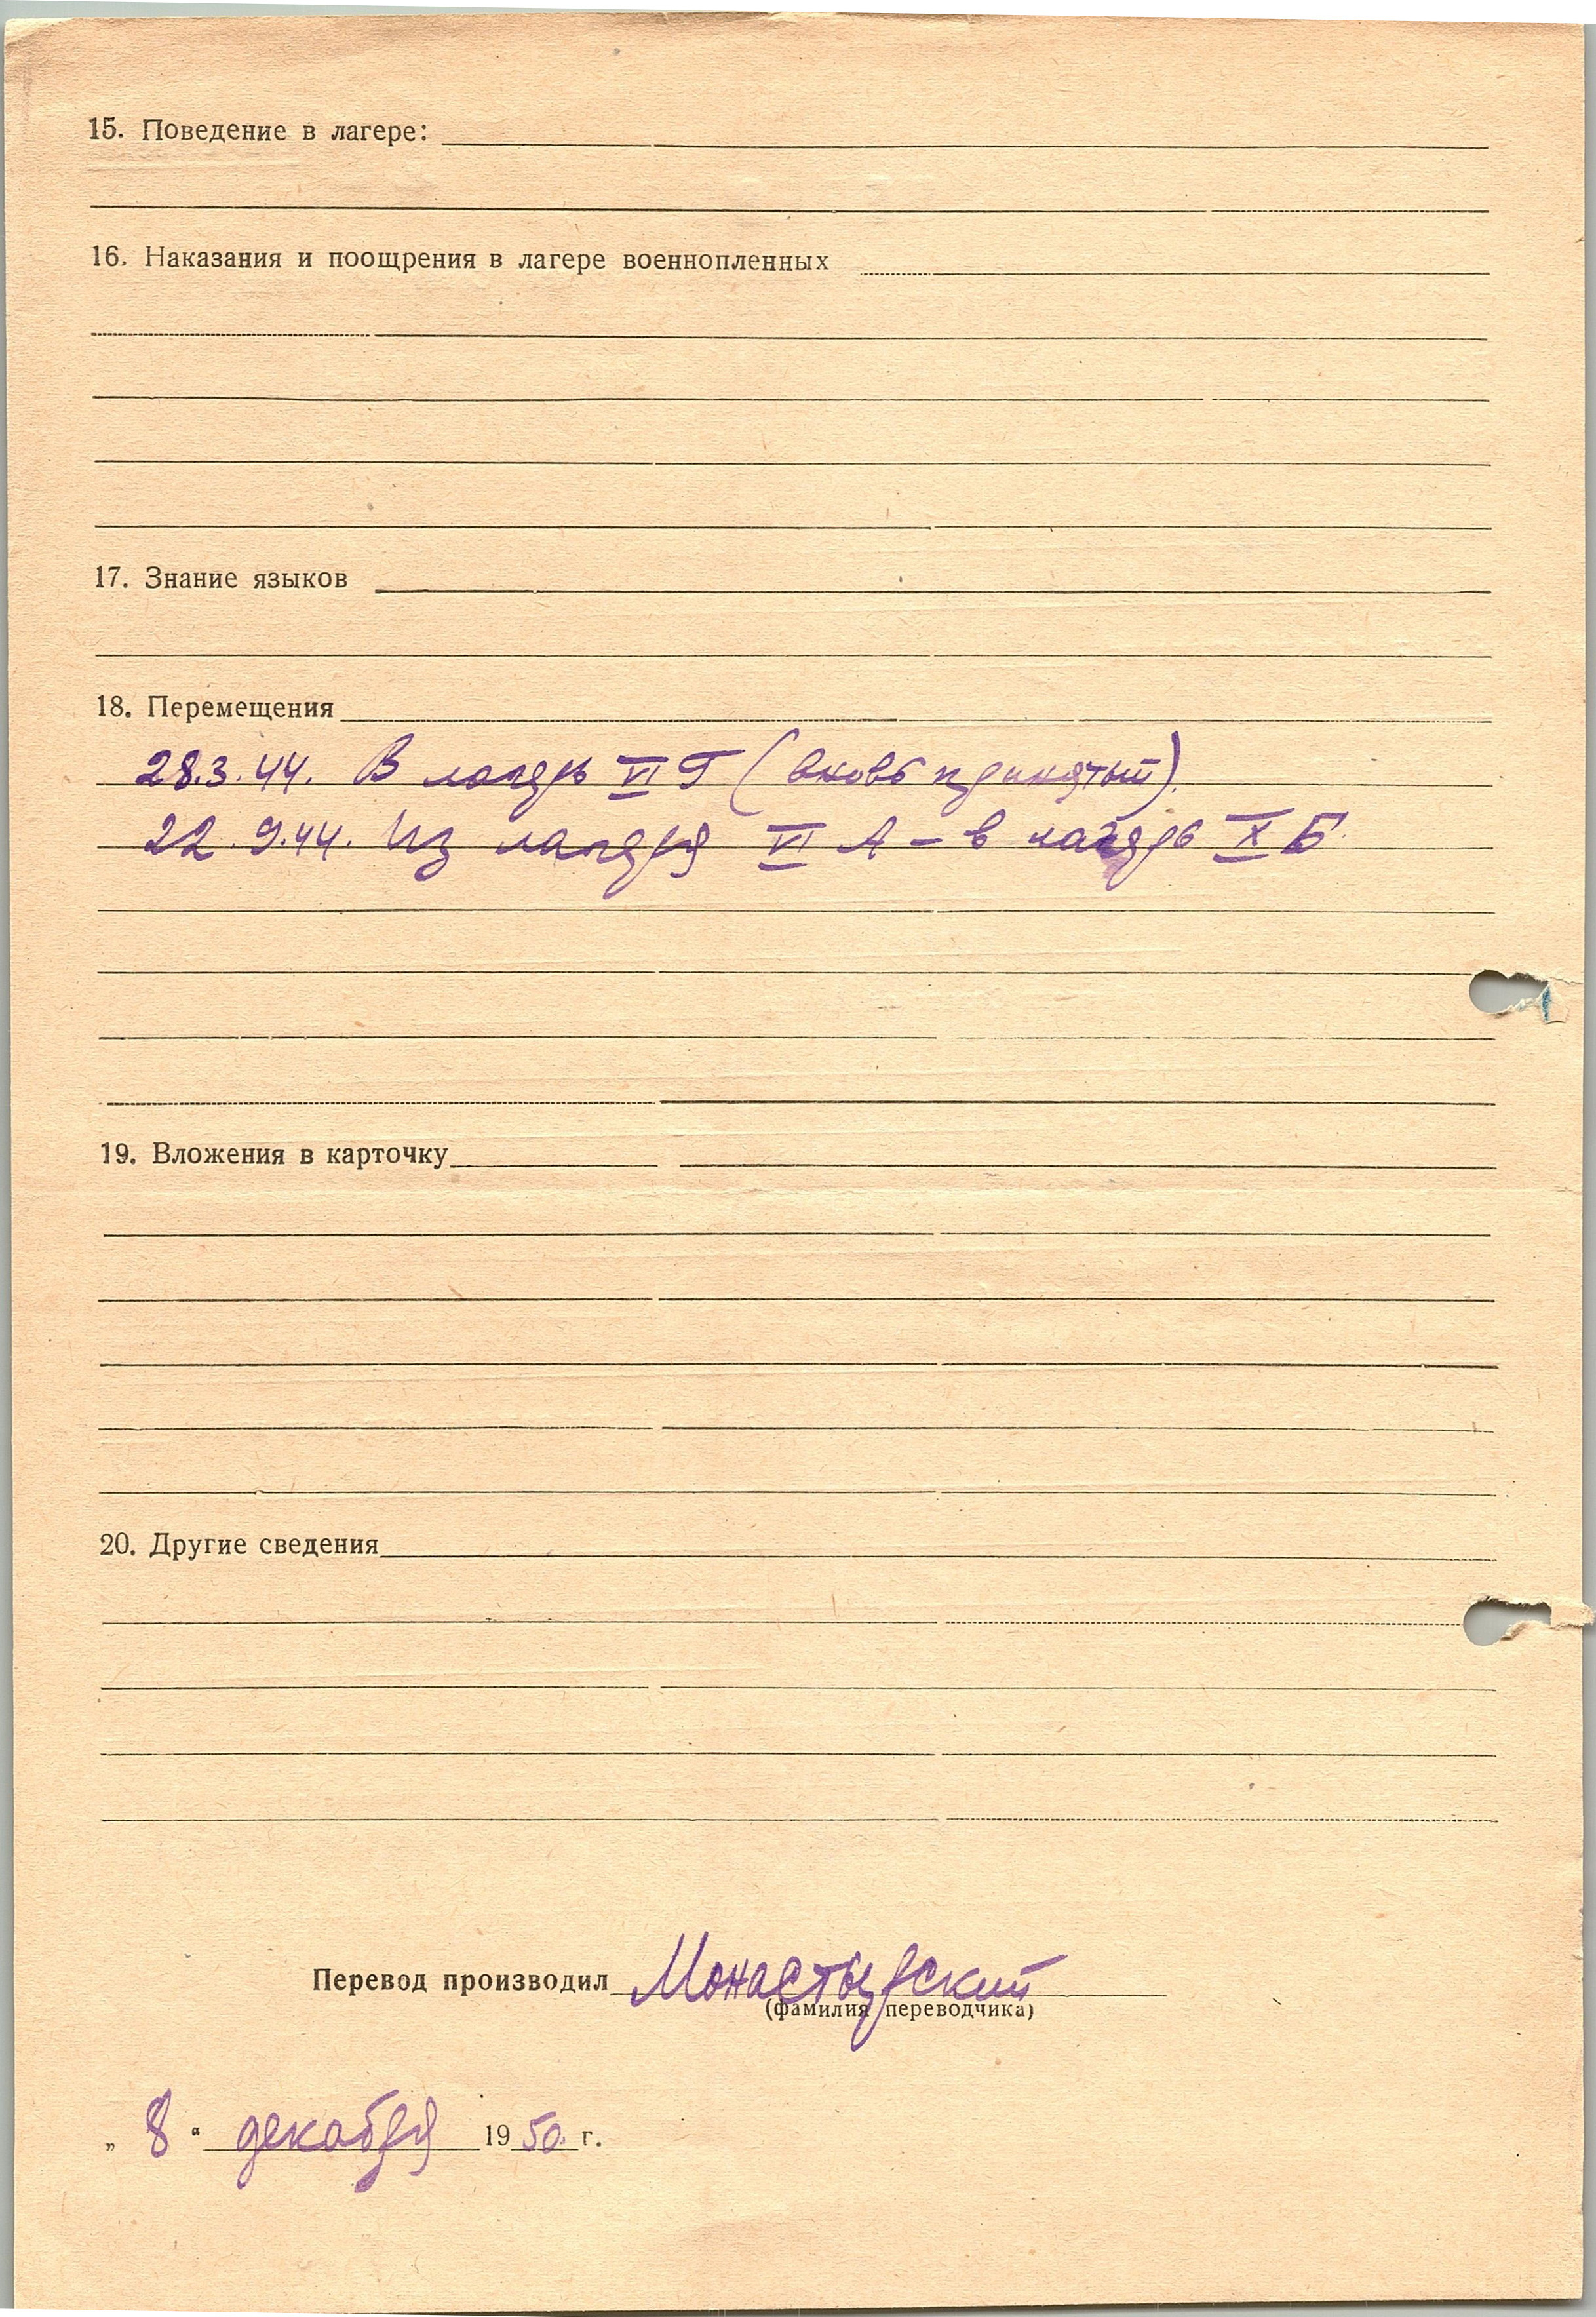 15. Поведение в лагере:
16. Наказания и поощрения в лагере военнопленных
17. Знание языков
18. Перемещения
28.3.44. В лагерь VI Г (вновь принятый).
22.9.44. Из лагеря VI А – в лагерь X Б.
19. Вложения в карточку
20. Другие сведения
Перевод производил Монастырский
(фамилия переводчика)
„ 8 “ декабря 1950 г.